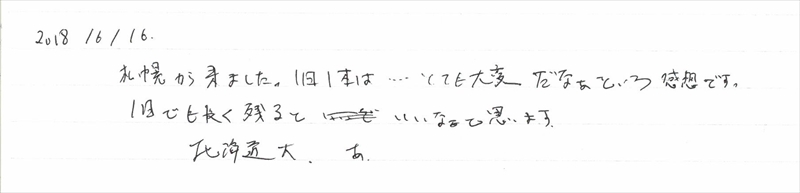 2018 16/16.
札幌から来ました。1日1本は…とても大変だなぁという感想です。
1日でも長く残るといいなぁと思います
北海道大. あ.